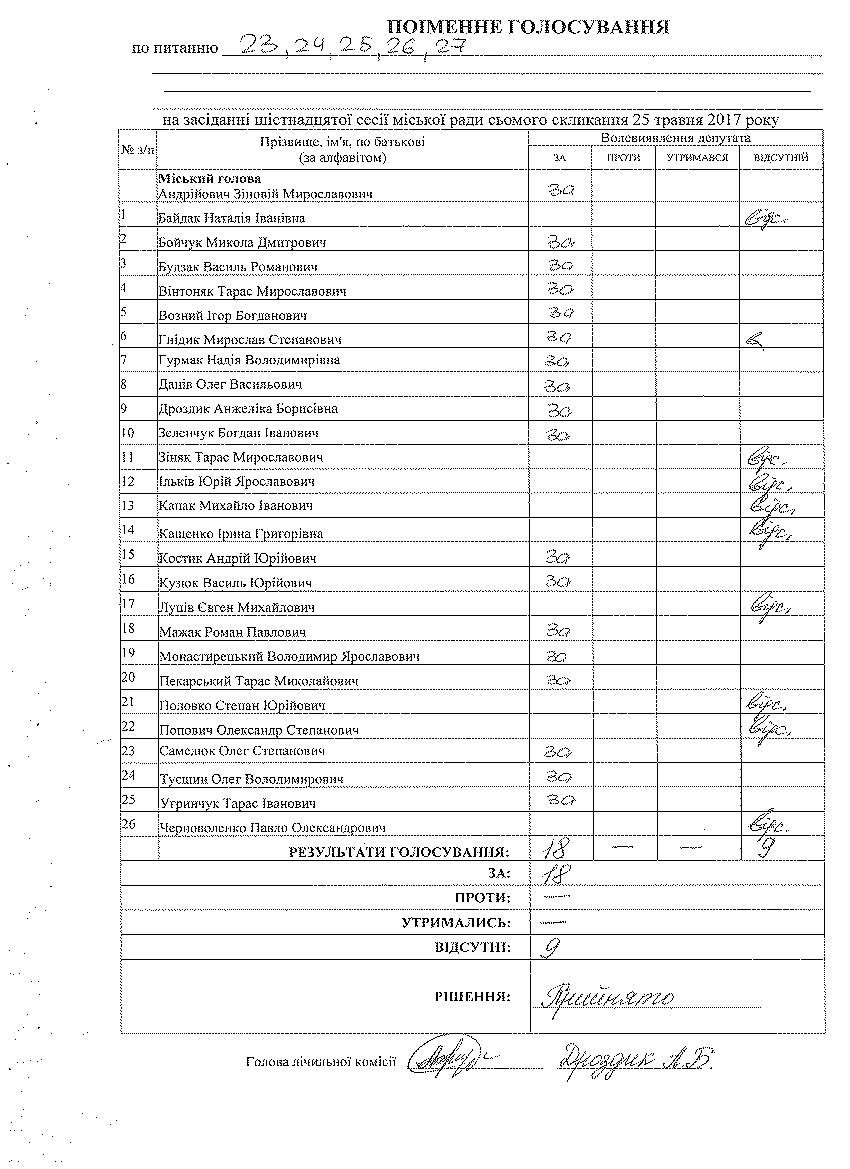 ПОІМЕННЕ ГОЛОСУВАННЯ
по питанню 23, 24, 25, 26, 27
на засіданні шістнадцятої сесії міської ради сьомого скликання 25 травня 2017 року
№ з/п Прізвище, ім'я, по батькові (за алфавітом) Волевиявлення депутата
ЗА ПРОТИ УТРИМАВСЯ ВІДСУТНІЙ
Міський голова
Андрійович Зіновій Мирославович за
1 Байдак Наталія Іванівна відс.
2 Бойчук Микола Дмитрович за
3 Будзак Василь Романович за
4 Вінтоняк Тарас Мирославович за
5 Возний Ігор Богданович за
6 Гнідик Мирослав Степанович за в
7 Гурмак Надія Володимирівна за
8 Данів Олег Васильович за
9 Дроздик Анжеліка Борисівна за
10 Зеленчук Богдан Іванович за
11 Зіняк Тарас Мирославович відс.
12 Ільків Юрій Ярославович відс.
13 Капак Михайло Іванович відс.
14 Кащенко Ірина Григорівна відс.
15 Костик Андрій Юрійович за
16 Кузюк Василь Юрійович за
17 Луців Євген Михайлович відс.
18 Мажак Роман Павлович за
19 Монастирецький Володимир Ярославович за
20 Пекарський Тарас Миколайович за
21 Половко Степан Юрійович відс.
22 Попович Олександр Степанович відс.
23 Самелюк Олег Степанович за
24 Туєшин Олег Володимирович за
25 Угринчук Тарас Іванович за
26 Черноволенко Павло Олександрович відс.
РЕЗУЛЬТАТИ ГОЛОСУВАННЯ: 18 — — 9
ЗА: 18
ПРОТИ: —
УТРИМАЛИСЬ: —
ВІДСУТНІ: 9
РІШЕННЯ: Прийнято
Голова лічильної комісії Дроздик А.Б.